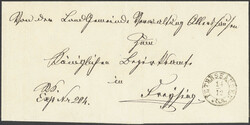 Von der Landgemeinde Verwaltung Allershausen
Zum
Königlichen Bezirksamte
in
Freysing.
Exp. Nr. 204.